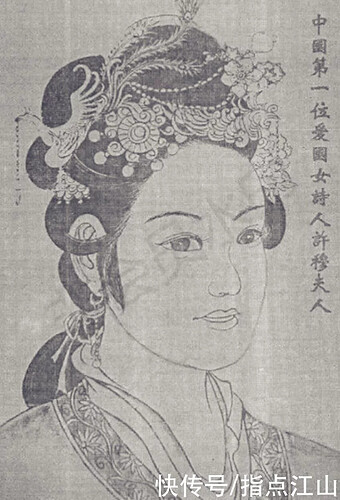 中國第一位愛國女詩人許穆夫人
快传号/指点江山